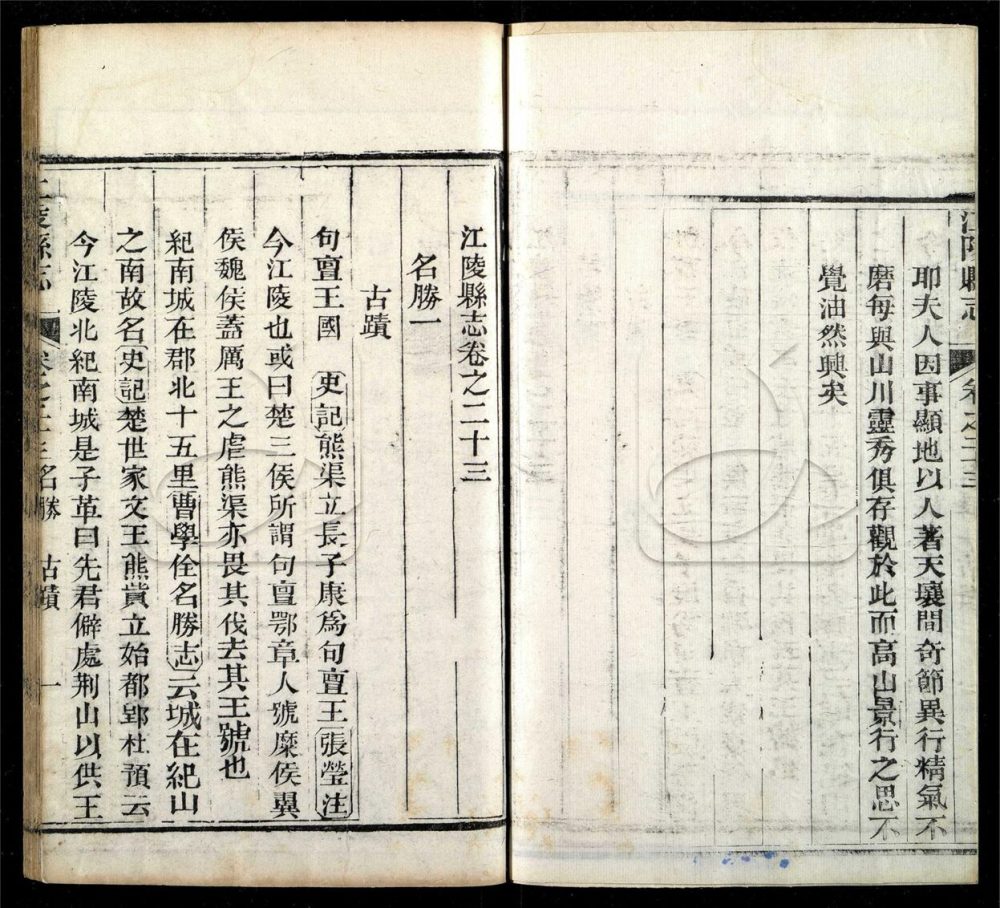 江陵縣志
卷之二十三
耶夫人因事顯地以人著天壤間奇節異行精氣不
磨每與山川靈秀俱存觀於此而高山景行之思不
覺油然興矣
江陵縣志卷之二十三
名勝一
古蹟
句亶王國 史記熊渠立長子康爲句亶王張瑩注
今江陵也或曰楚三侯所謂句亶鄂章人號麋侯翼
侯魏侯蓋厲王之虐熊渠亦畏其伐去其王號也
紀南城在郡北十五里曹學佺名勝志云城在紀山
之南故名史記楚世家文王熊貲立始都郢杜預云
今江陵北紀南城是子革曰先君僻處荆山以供王
江陵縣志
卷之二十三名勝 古蹟 一